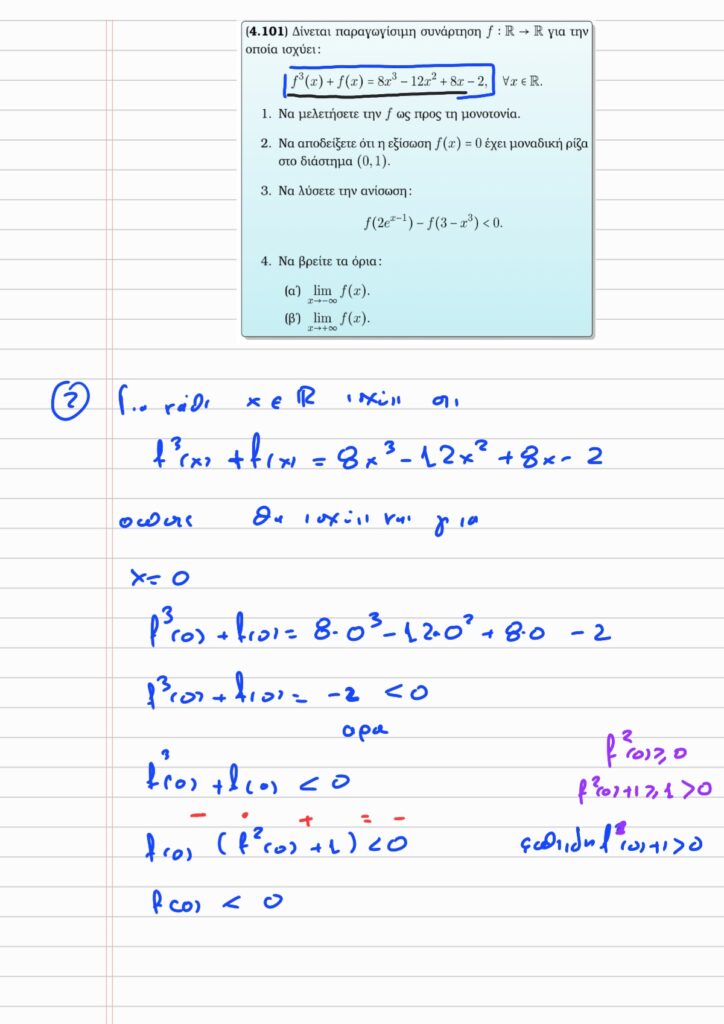 (4.101) Δίνεται παραγωγίσιμη συνάρτηση f : ℝ → ℝ για την
οποία ισχύει:
f³(x) + f(x) = 8x³ − 12x² + 8x − 2, ∀x ∈ ℝ.
1. Να μελετήσετε την f ως προς τη μονοτονία.
2. Να αποδείξετε ότι η εξίσωση f(x) = 0 έχει μοναδική ρίζα
στο διάστημα (0, 1).
3. Να λύσετε την ανίσωση:
f(2eˣ⁻¹) − f(3 − x³) < 0.
4. Να βρείτε τα όρια:
(α) lim x→−∞ f(x).
(β) lim x→+∞ f(x).
② Για κάθε x ∈ ℝ ισχύει οτι
f³(x) + f(x) = 8x³ − 12x² + 8x − 2
θα ισχύει και για
x = 0
f³(0) + f(0) = 8·0³ − 12·0² + 8·0 − 2
f³(0) + f(0) = −2 < 0
αρα
f³(0) + f(0) < 0
f²(0) ≥ 0
f²(0)+1 ≥ 1 > 0
− · + = −
f(0) (f²(0) + 1) < 0
f²(0)+1 > 0
f(0) < 0